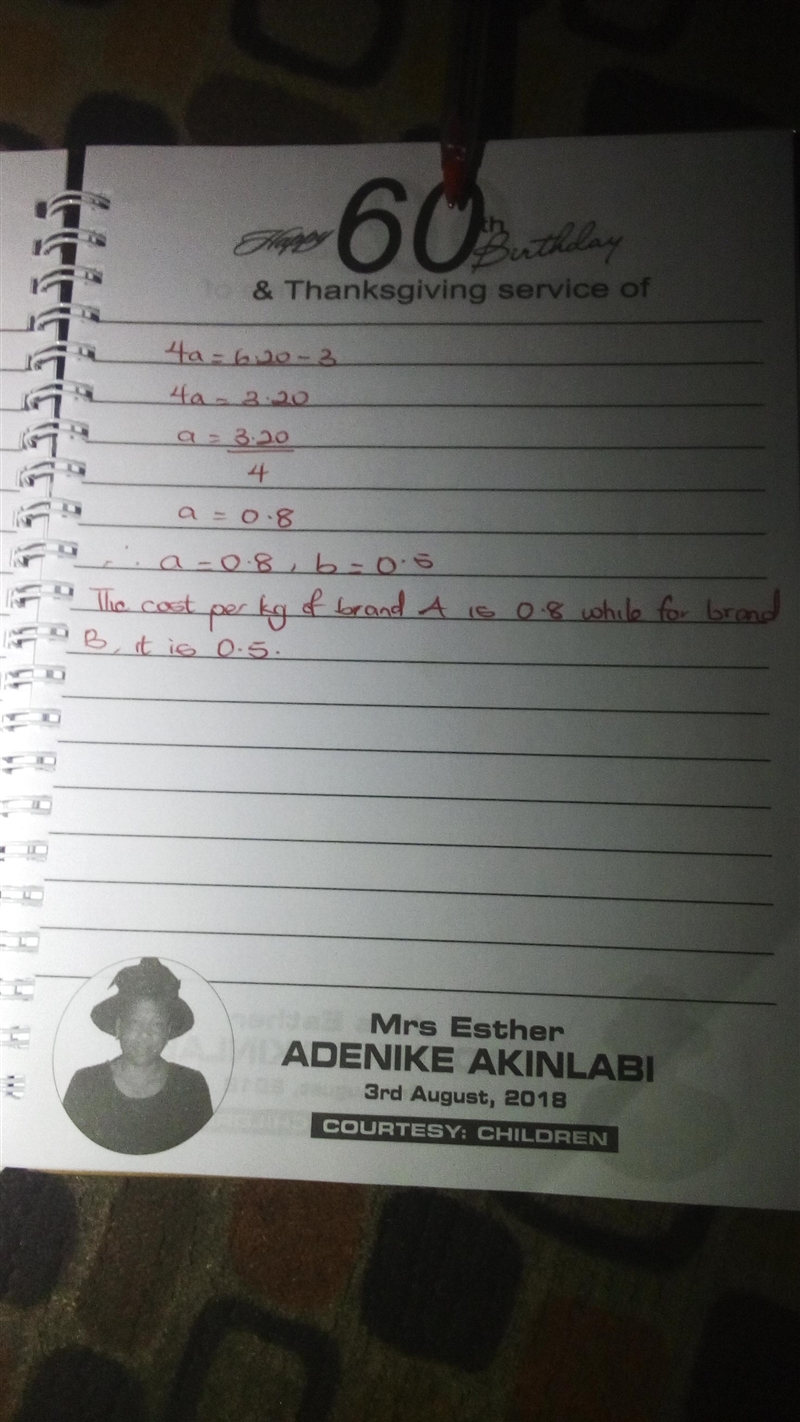 Happy 60th Birthday
& Thanksgiving service of
4a = 6.20 - 3
4a = 3.20
a = 3.20
4
a = 0.8
∴ a = 0.8, b = 0.5
The cost per kg of brand A is 0.8 while for brand
B, it is 0.5.
Mrs Esther
ADENIKE AKINLABI
3rd August, 2018
COURTESY: CHILDREN